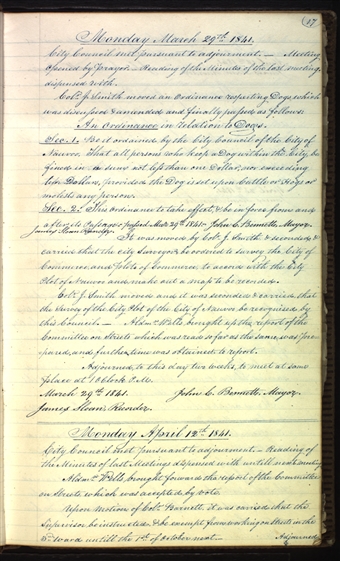 17
Monday March 29th 1841.
City Council met pursuant to adjournment. — Meeting
opened by Prayer. — Reading of the Minutes of the last meeting
dispensed with.
Col. J. Smith moved an Ordinance respecting Dogs which
was discussed & amended and finally passed as follows.
An Ordinance in relation to Dogs.
Sec. 1. Be it ordained by the City Council of the City of
Nauvoo, That all persons who keep a Dog within the City be
fined in a sum not less than one Dollar, nor exceeding
ten Dollars, provided the Dog is set upon Cattle or Hogs or
molests any person.
Sec. 2. This ordinance to take effect, & be in force from and
after its Passage. Passed Mar. 29th 1841. John C. Bennett, Mayor.
James Sloan Recorder.
It was moved by Col. J. Smith & seconded &
carried that the City Surveyor be ordered to survey the City of
Commerce, and Plots of Commerce to accord with the City
Plot of Nauvoo and make out a map to be recorded.
Col. J. Smith moved and it was seconded & carried, that
the survey of the City Plot of the City of Nauvoo be recognized by
this Council. — Aldn. Wells, brought up the report of the
Committee on Streets which was read so far as the same was pre-
pared, and further time was obtained to report.
Adjourned to this day two weeks, to met at same
place at 1 OClock P.M.
March 29th 1841. John C. Bennett, Mayor.
James Sloan Recorder.
Monday April 12th 1841.
City Council met, pursuant to adjournment. — Reading of
the Minutes of last Meetings dispensed with untill next meeting
Aldn. Wells, brought forward the report of the Committee
on Streets which was accepted by vote.
Upon motion of Col. Barnett, it was carried that the
Supervisor be instructed, & be exempt from working on Streets in the
Ward untill the 1st of October next. — Adjourned